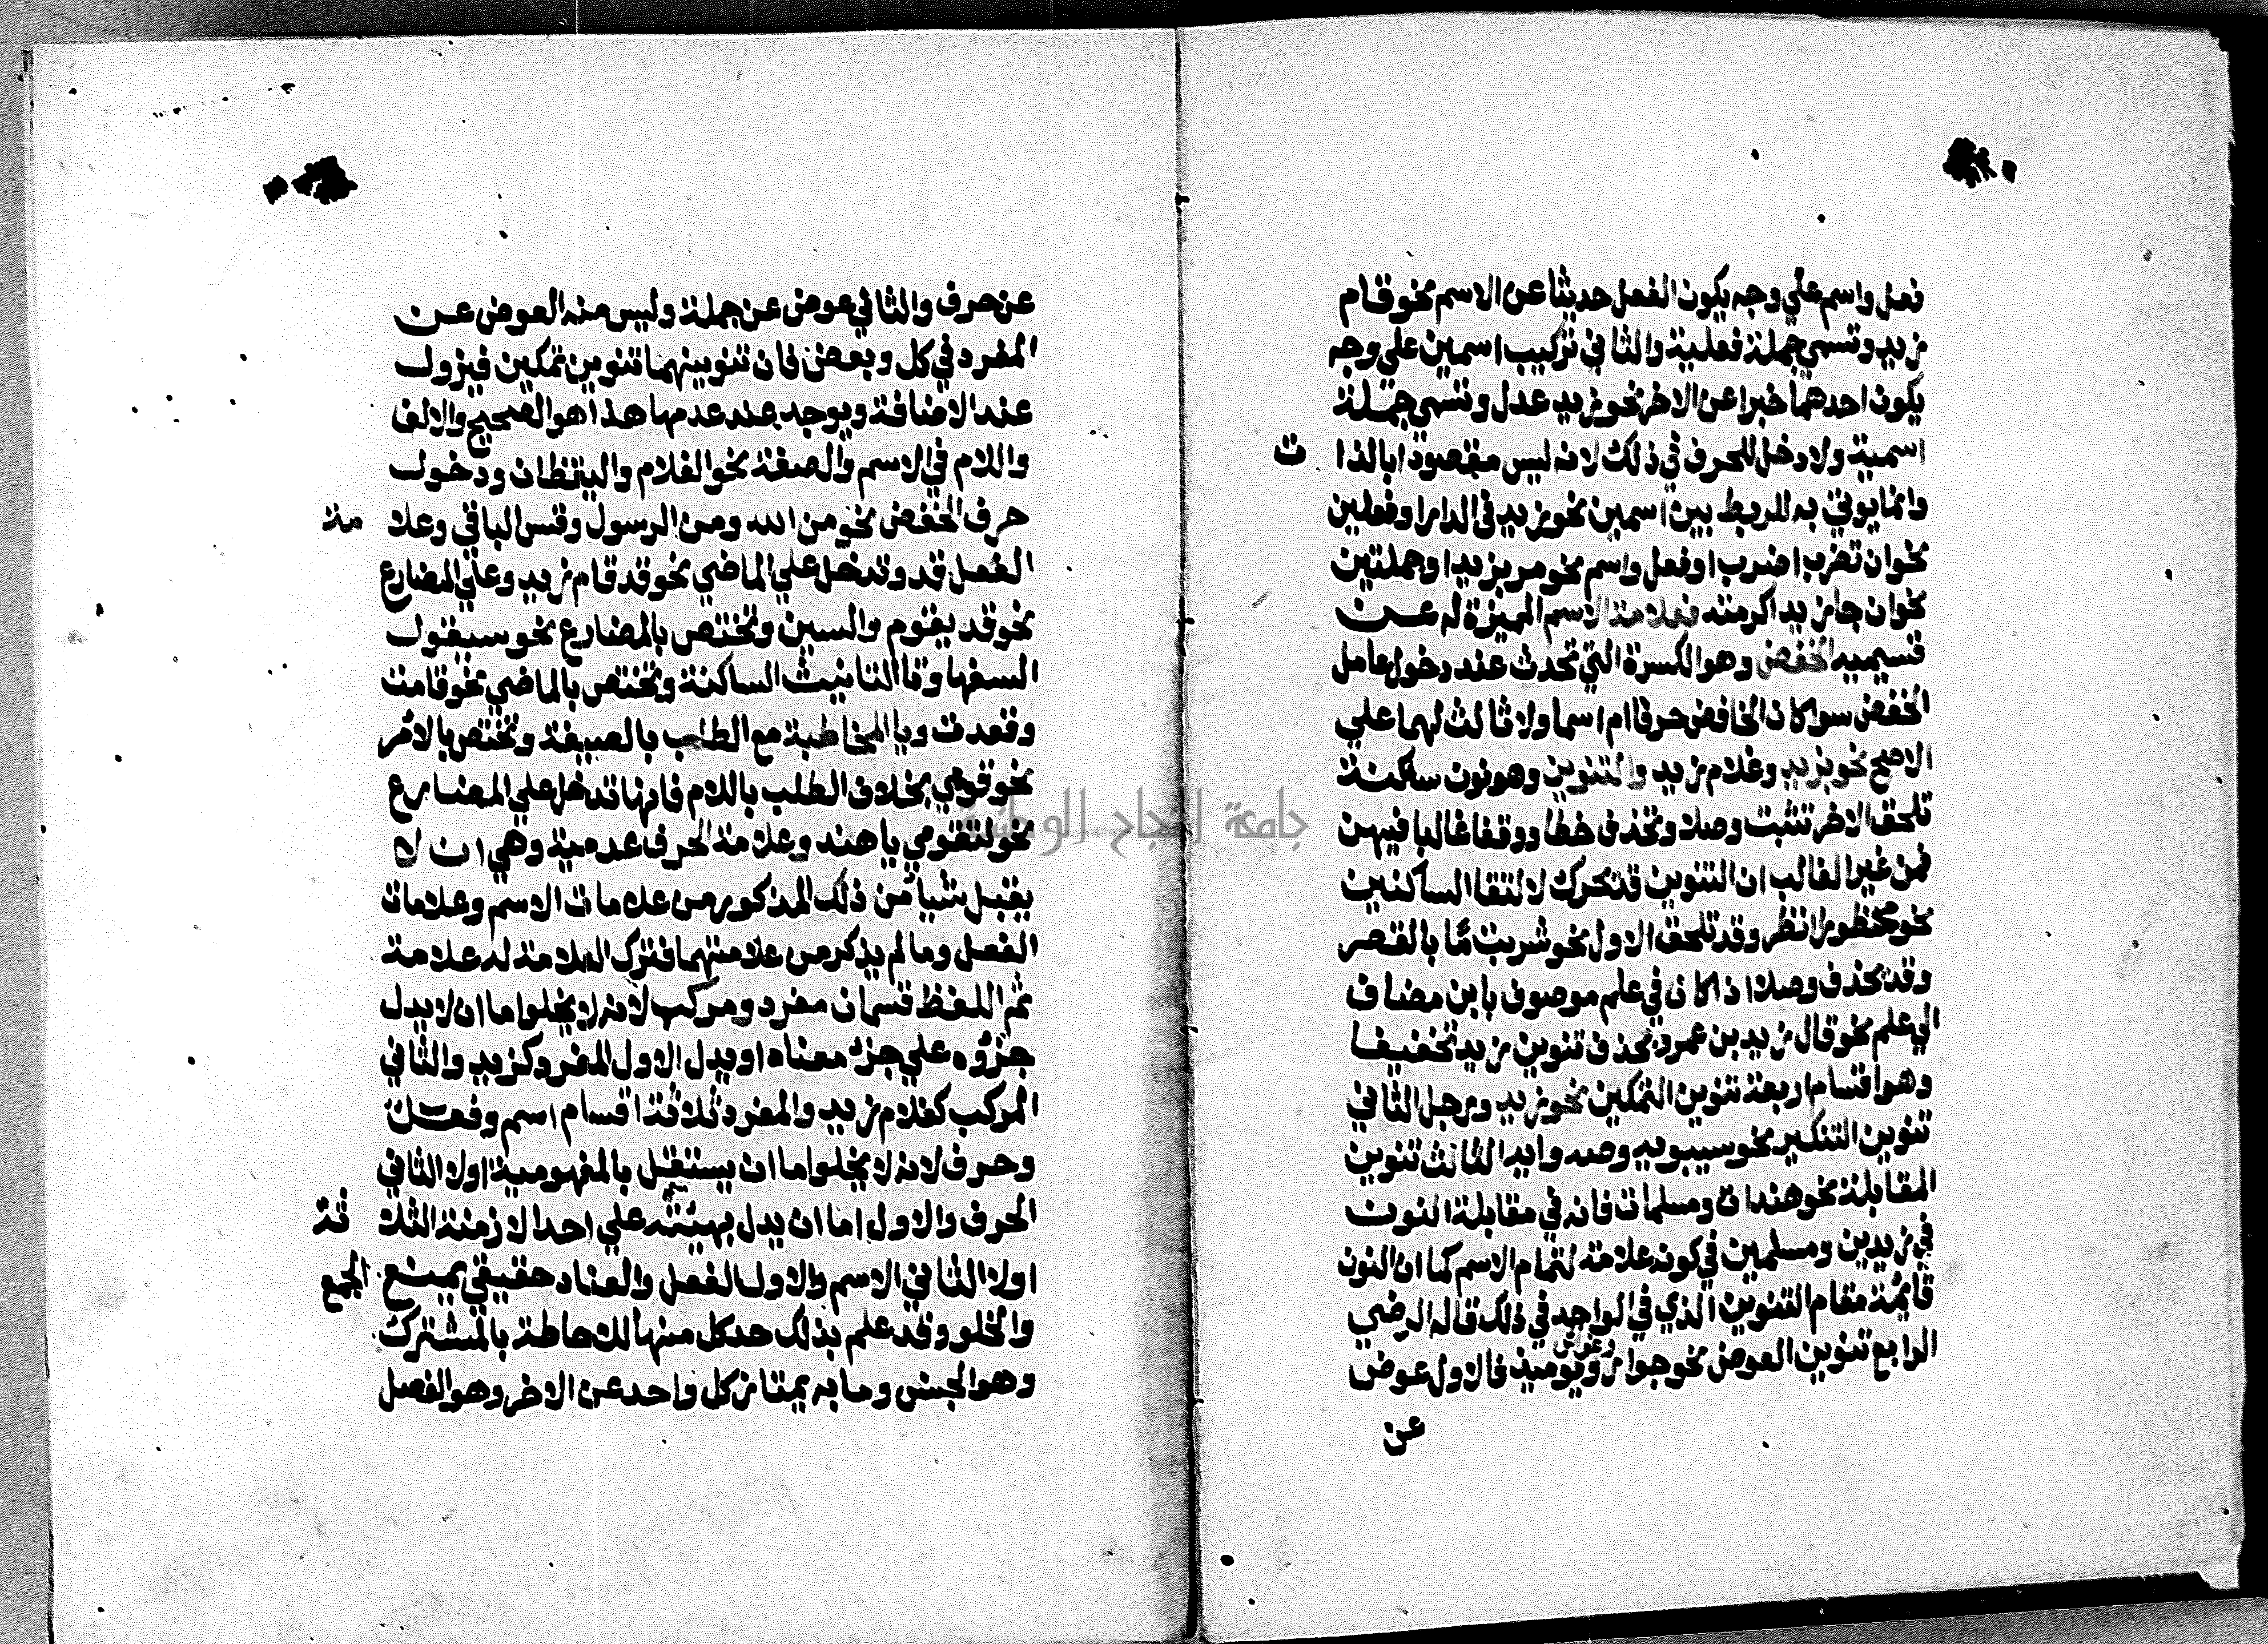 فعل واسم علي وجه يكون الفعل حديثا عن الاسم نحو قام
زيد وتسمي جملة فعلية والثاني تركيب اسمين علي وجه
يكون احدهما خبرا عن الاخر نحو زيد عدل وتسمي جملة
اسمية ولا دخل للحرف في ذلك لانه ليس مقصودا بالذا ت
وانما يوتي به للربط بين اسمين نحو زيد في الدار او فعلين
نحو ان تضرب اضرب او فعل واسم نحو مر بزيد او جملتين
نحو ان جا زيد اكرمته فعلامة الاسم المميزة له عن
قسيميه الخفض وهو الكسرة التي تحدث عند دخول عامل
الخفض سوا كان الخافض حرفا ام اسما ولا ثالث لهما علي
الاصح نحو بزيد وغلام زيد والتنوين وهو نون ساكنة
تلحق الاخر تثبت وصلا وتحذف خطا ووقفا غالبا فيهن
فمن غير الغالب ان التنوين قد تحرك لالتقا الساكنين
نحو محظورا انظر وقد تلحق الاول نحو شربت مًا بالقصر
وقد تحذف وصلا اذا كان في علم موصوف بابن مضاف
الي علم نحو قال زيد بن عمرو تحذف تنوين زيد تخفيفا
وهو اقسام اربعة تنوين التمكين نحو زيد ورجل الثاني
تنوين التنكير نحو سيبويه وصه وايه الثالث تنوين
المقابلة نحو هندات ومسلمات فانه في مقابلة النون
في زيدين ومسلمين في كونه علامة لتمام الاسم كما ان النون
قائمة مقام التنوين الذي في الواحد في ذلك قاله الرضي
الرابع تنوين العوض نحو جوار وغواش ويوميذ فالاول عوض
عن
عن حرف والثاني عوض عن جملة وليس منه العوض عن
المفرد في كل وبعض فان تنوينهما تنوين تمكين فيزول
عند الاضافة ويوجد عند عدمها هذا هو الصحيح والالف
واللام في الاسم والصفة نحو الغلام واليقظان ودخول
حرف الخفض نحو من الله ومن الرسول وقس الباقي وعلا مة
الفعل قد وتدخل علي الماضي نحو قد قام زيد وعلي المضارع
نحو قد يقوم والسين وتختص بالمضارع نحو سيقول
السفها وتا التانيث الساكنة وتختص بالماضي نحو قامت
وقعدت ويا المخاطبة مع الطلب بالصيغة وتختص بالامر
نحو قومي بخلاف الطلب باللام فانها تدخل علي المضارع
نحو لتقومي يا هند وعلامة الحرف عدمية وهي ان لا
يقبل شيا من ذلك المذكور من علامات الاسم وعلامات
الفعل وما لم يذكر من علامتهما فترك العلامة له علامة
ثم اللفظ قسمان مفرد ومركب لانه لا يخلوا ما ان لا يدل
جزؤه علي جزء معناه او يدل الاول المفرد كزيد والثاني
المركب كغلام زيد والمفرد ثلاثة اقسام اسم وفعل
وحرف لانه لا يخلوا ما ان يستقل بالمفهومية اولا الثاني
الحرف والاول اما ان يدل بهيئته علي احد الازمنة الثلا ثة
اولا الثاني الاسم والاول الفعل والعناد حقيقي يمنع الجمع
والخلو وقد علم بذلك حد كل منها للاحاطة بالمشترك
وهو الجنس وما به يمتاز كل واحد عن الاخر وهو الفصل
جامعة النجاح الوطنية